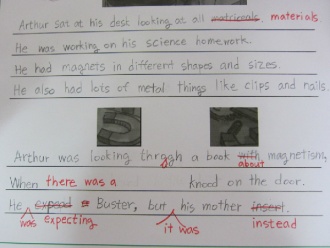 Arthur sat at his desk looking at all matricals materials
He was working on his science homework.
He had magnets in different shapes and sizes.
He also had lots of metal things like clips and rails.
Arthur was looking throgh a book with about magnetism,
When there was a knocd on the door.
He expsod was expecting Buster, but it was his mother insert. instead